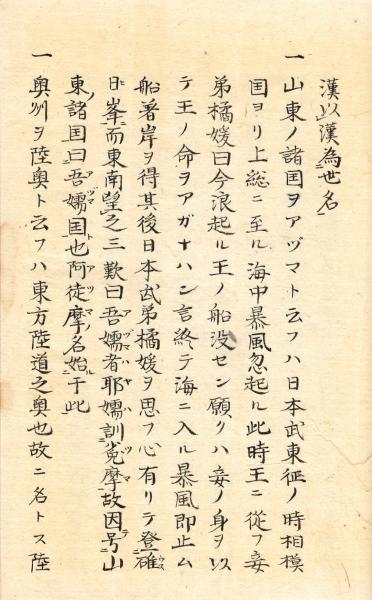 漢以漢為世名
一 山東ノ諸国ヲアヅマト云フハ日本武東征ノ時相模
国ヨリ上総ニ至ル海中暴風忽起ル此時王ニ従フ妾
弟橘媛曰今浪起ル王ノ船没セン願クハ妾ノ身ヲ以
テ王ノ命ヲアガナハン言終テ海ニ入ル暴風即止ム
船著岸ヲ得其後日本武弟橘媛ヲ思フ心有リテ登碓
日峯而東南望之三歎曰吾嬬者耶嬬訓菟摩故因号山
東諸国曰吾嬬国也阿徒摩ノ名始于此
一 奥州ヲ陸奥ト云フハ東方陸道之奥也故ニ名トス陸